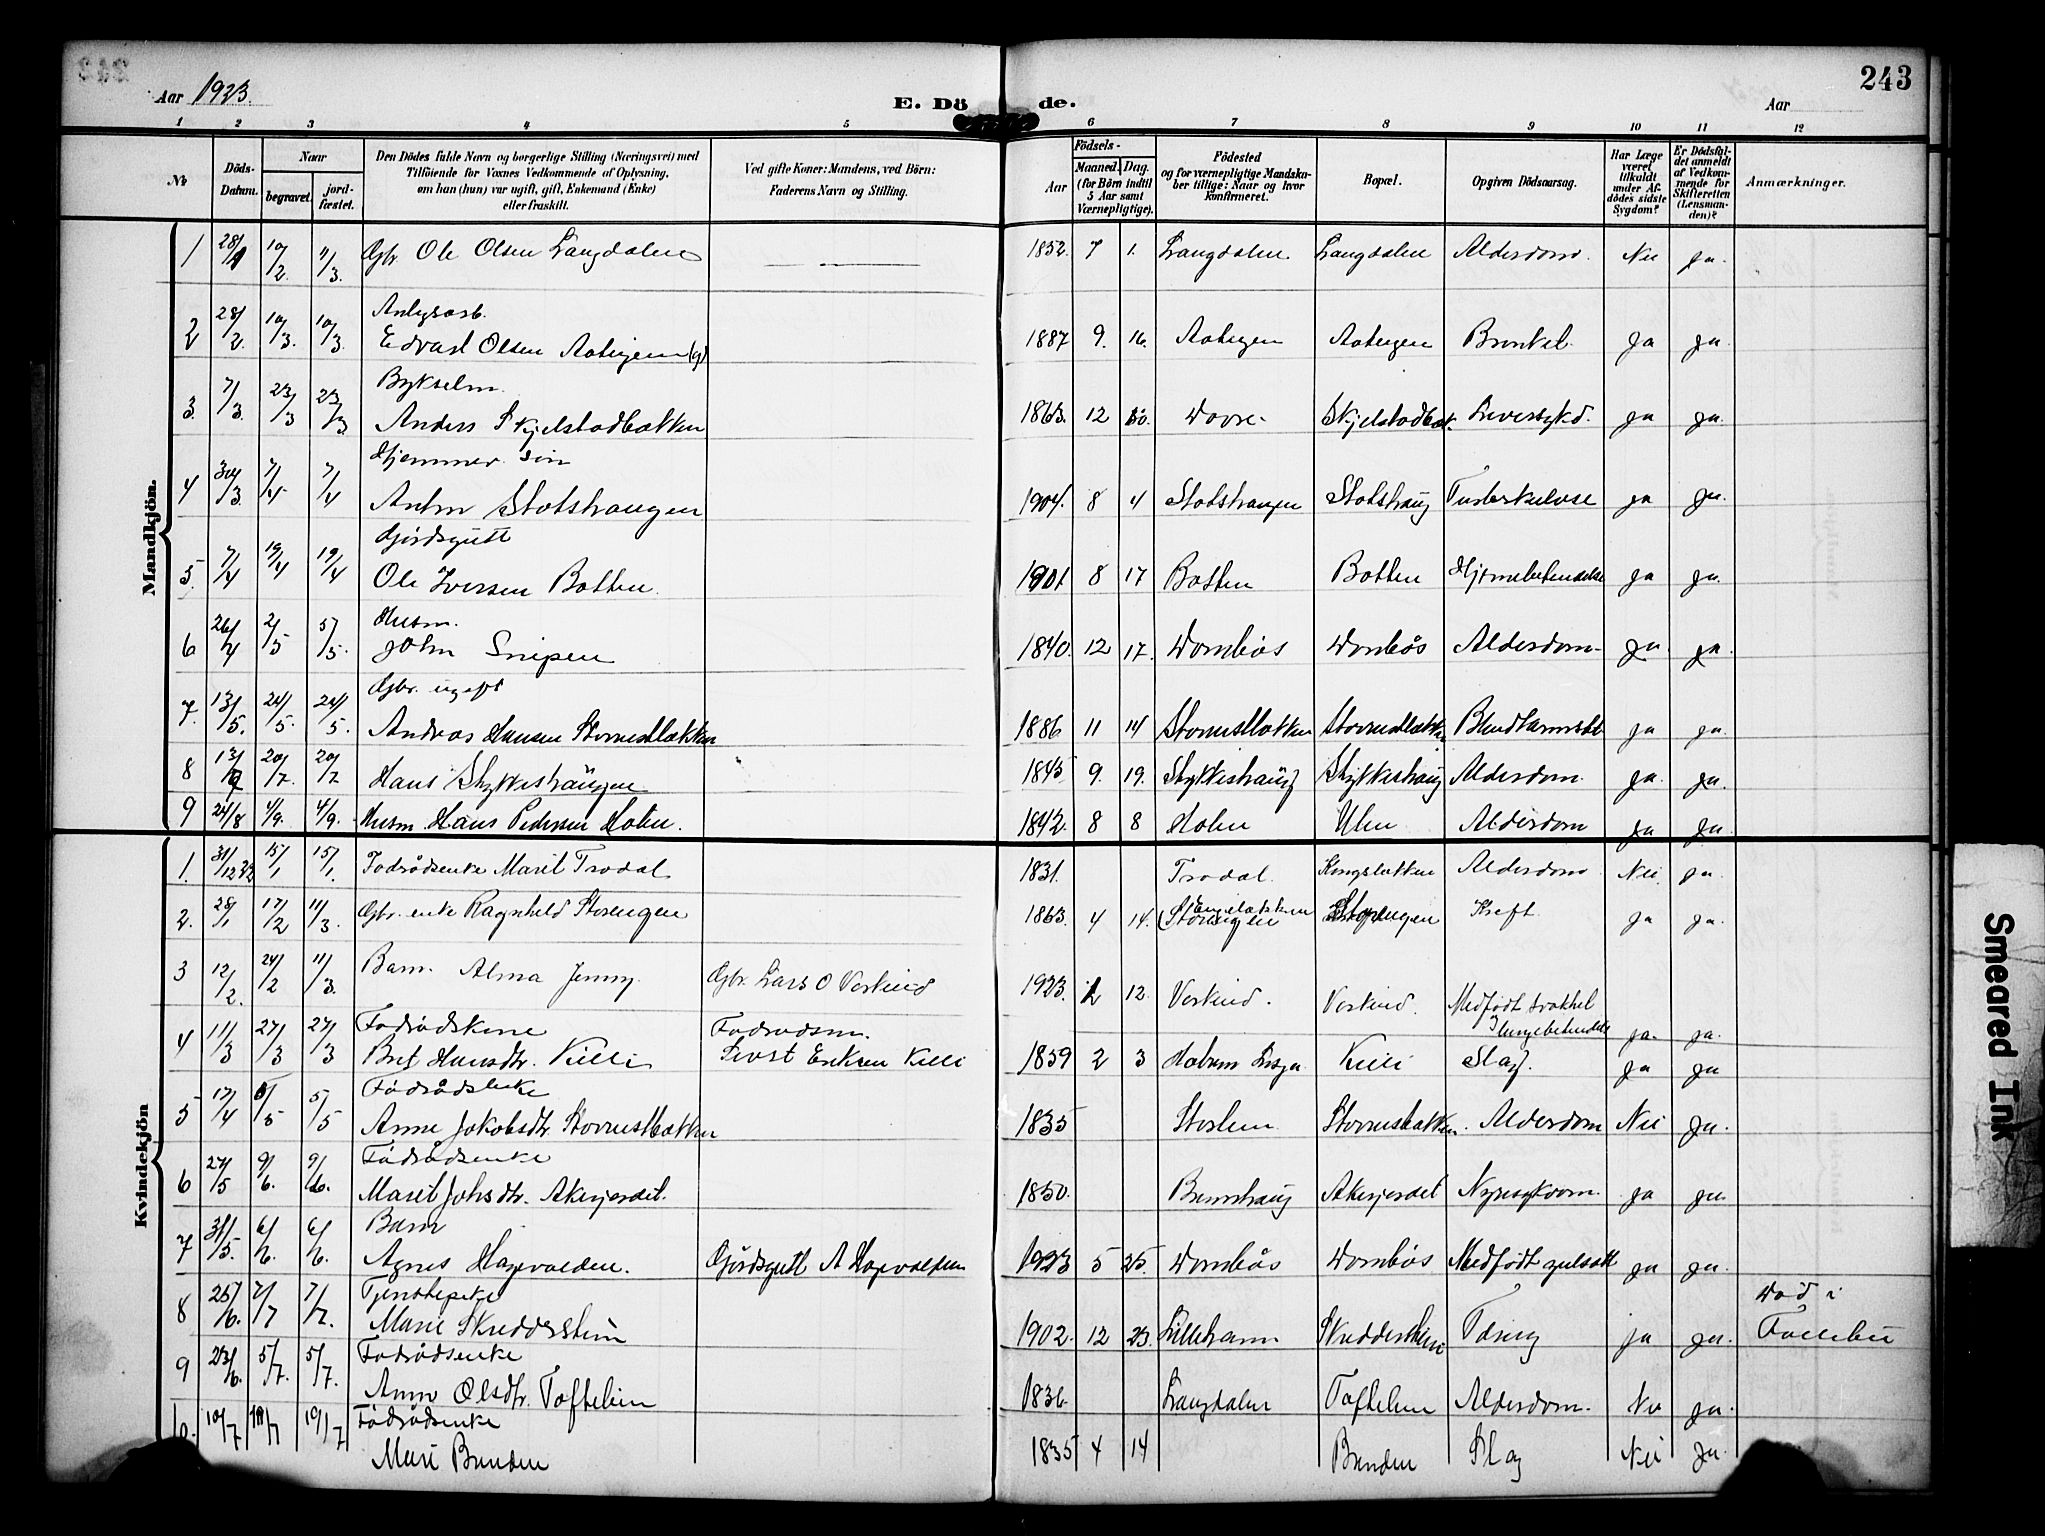 243
Aar 1923.
E. Döde.
243
Aar
1 2 3 4 5 6 7 8 9 10 11 12
No
Döds-Datum.
Naar
begravet.
jord-fæstet.
Den Dödes fulde Navn og borgerlige Stilling (Næringsvei) med
Tilföiende for Voxnes Vedkommende af Oplysning,
om han (hun) var ugift, gift, Enkemand (Enke)
eller fraskilt.
Ved gifte Koner: Mandens, ved Börn:
Faderens Navn og Stilling.
Födsels-
Aar
Maaned. Dag.
(for Börn indtil
5 Aar samt
Værnepligtige).
Födested
og for værnepligtige Mandska-
ber tillige: Naar og hvor
konfirmeret.
Bopæl.
Opgiven Dödsaarsag.
Har Læge
været
tilkaldt
under Af-
dödes sidste
Sygdom?
Er Dödsfal-
det anmeldt
af Vedkom-
mende for
Skifteretten
(Lensman-
den)?
Anmærkninger.
Mandkjön.
1 28/1 10/2 11/3. Gbr Ole Olsen Langdalen 1852. 7 1. Langdalen Langdalen Alderdom. Nei ja.
2 28/2. 10/3. 10/3. Anlegsarb.
Edvard Olsen (g) 1887 9. 16. ja ja.
3. 7/3. 23/3 23/3 Bykselm.
Anders Skjelstadbakken 1863. 12 Dovre Skjelstadbak. Leversykd. ja ja.
4 30/3. 7/4 7/4 Hjemmev. søn
Anton Slotshaugen 1904. 8 4 Slotshaugen Slotshaug Tuberkulose ja ja.
5. 7/4 19/4 19/4 Gårdsgutt
Ole Iversen Botten 1901. 8 17 Botten Botten Hjernebetendelse ja ja.
6 26/4 2/5 5/5. Husm.
John Snipen 1840. 12 17. Dombås Dombås Alderdom ja ja.
7. 13/5. 24/5. 24/5. Gbr. ugift
Andras Hansen 1886 11 14 ja ja.
8 20/7. 20/7 Hans 1845 9. 19. Alderdom. ja. ja.
9 24/8 4/9. 4/9. Husm. Hans Pedersen Holen. 1842. 8 8 Holen Ulen Alderdom ja ja.
Kvindekjön
1. 31/12 22 15/1 15/1. Fødrådsenke Marit Trodal 1831. Trodal. Kongsbakken Alderdom Nei. ja.
2. 28/1 17/2 11/3. Gbr. enke Ragnhild Storengen 1863. 4 14. Storengen Kreft ja ja.
3 12/2. 24/2 11/3. Barn. Alma Jenny. Gbr. Lars O Vorkind 1923. 12. Vorkind. Vorkind. Medfødt svakhet
lungebetendelse ja. ja.
4 11/3 27/3 27/3 Fødrådskone Fødrådsm.
Brit Hansdtr. Killi Sivert Eriksen Killi 1839 2 3 Killi Slag. ja ja
5 17/4 5/5 Fødrådsenke
Anne Jakobsdtr. 1835 Alderdom Nei ja.
6 27/5 9/6. 9/6. Fødrådsenke
Marit Johsdtr. Akerjordet. 1850. Brenhaug Akerjordet Nyresykdom. ja ja.
7 31/5. 6/6. 6/6. Barn
Agnes Hagevolden. Gårdsgutt A Hagevolden 1923 5 25. Dombås Dombås Medfødt gulsott ja ja.
8 25/6. 7/7 7/7. Tjenstepike
Marie Skredderstuen 1902. 12 23. Lillehamm Tæring ja ja. Død i
Follebu
9 23/6. 5/7. 5/7. Fødrådsenke
Anne Olsdtr. Toftelien 1836. Langdalen Toftelien Alderdom. Nei ja.
10. 10/7 19/7 19/7 Fødrådsenke
Mari Brenden 1835 4 14 Brenden Slag Nei ja.
Smeared Ink